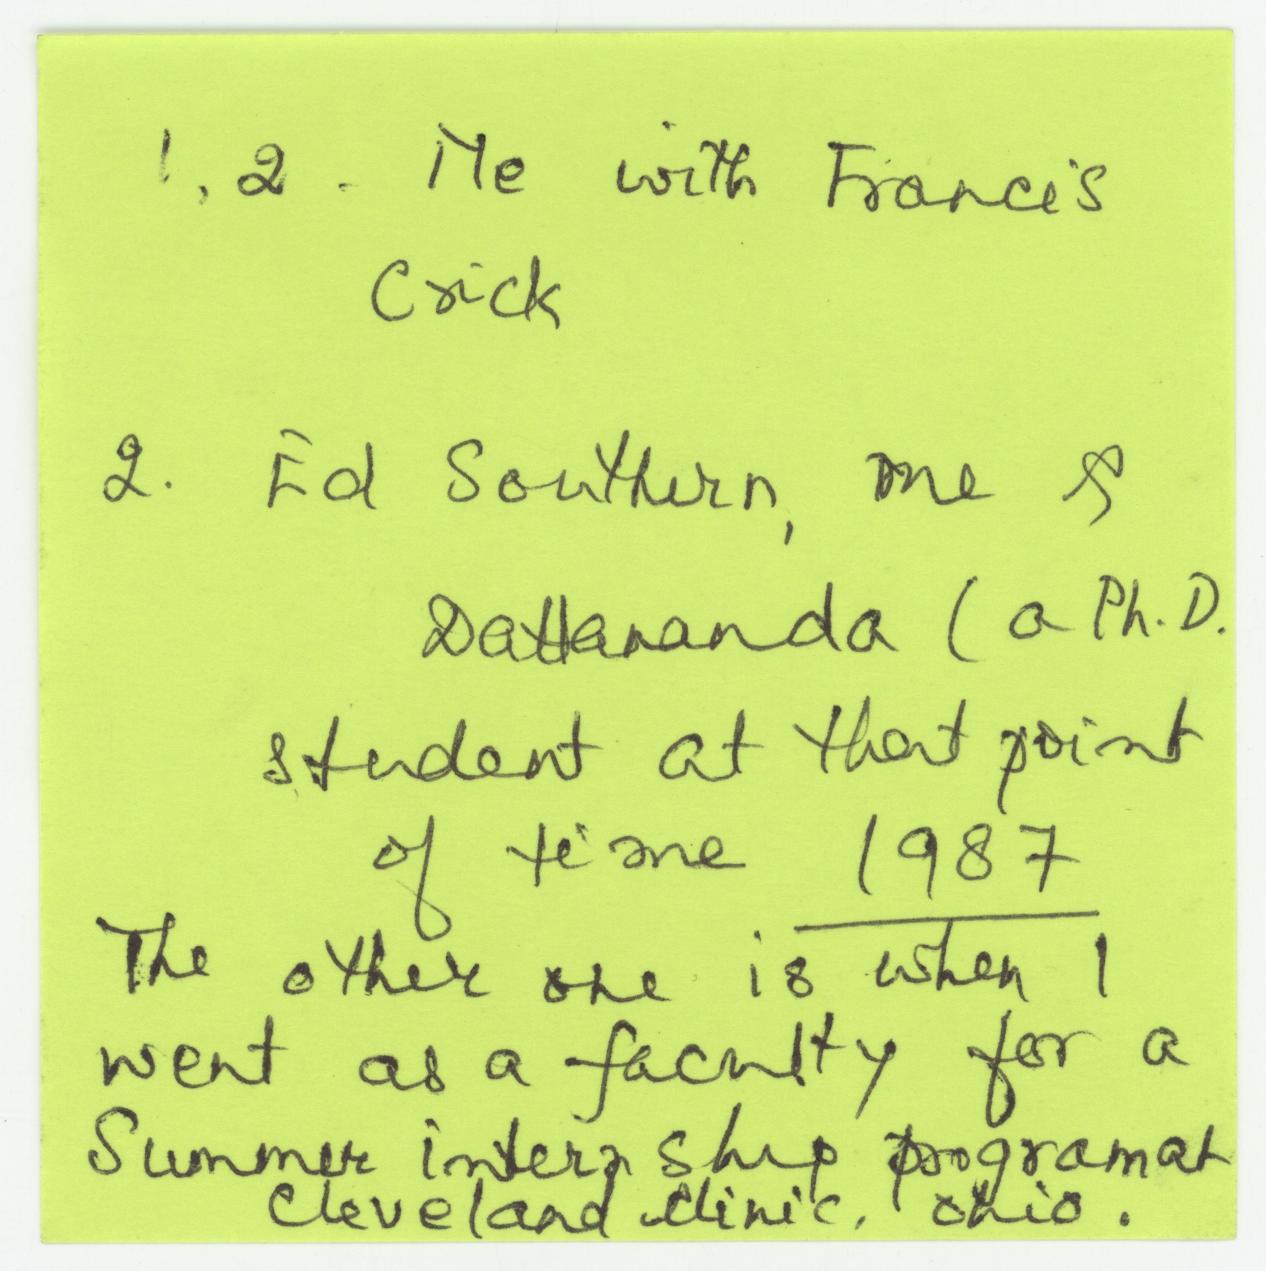 1,2. Me with Francis
Crick
2. Ed Southern, me &
Dattananda (a Ph.D.
student at that point
of time 1987
The other one is when I
went as a faculty for a
Summer internship program at
Cleveland clinic, Ohio.